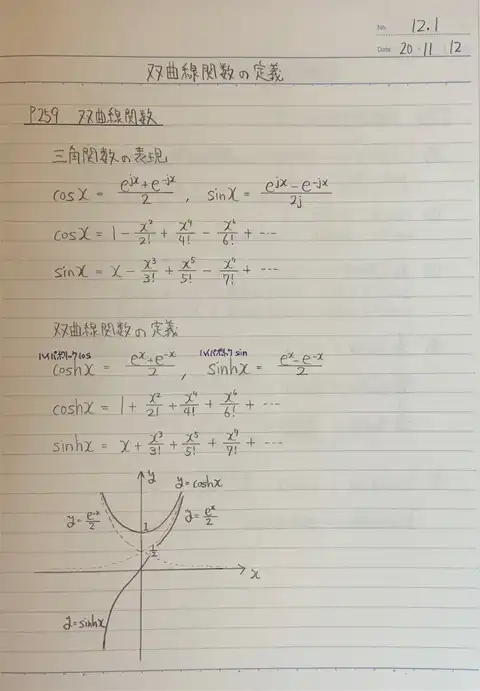 No. 12.1
Date 20・11 12
双曲線関数の定義
P259 双曲線関数
三角関数の表現
cosx = (e^jx + e^-jx)/2 , sinx = (e^jx - e^-jx)/2j
cosx = 1 - x²/2! + x⁴/4! - x⁶/6! + ---
sinx = x - x³/3! + x⁵/5! - x⁷/7! + ---
双曲線関数の定義
ハイパボリックcos ハイパボリックsin
coshx = (e^x + e^-x)/2 , sinhx = (e^x - e^-x)/2
coshx = 1 + x²/2! + x⁴/4! + x⁶/6! + ---
sinhx = x + x³/3! + x⁵/5! + x⁷/7! + ---
y
y=coshx
y=e^-x/2
y=e^x/2
1
1/2
x
y=sinhx